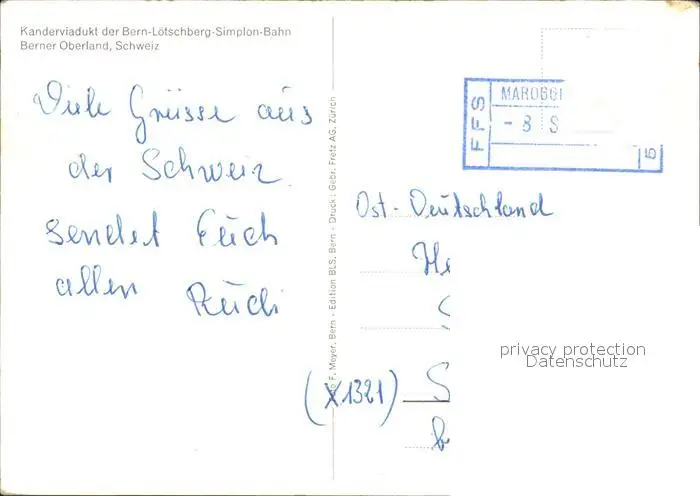 Kanderviadukt der Bern-Lötschberg-Simplon-Bahn
Berner Oberland, Schweiz
Viele Grüsse aus
der Schweiz
sendet Euch
allen Ruedi
F. Meyer, Bern - Edition BLS, Bern - Druck: Gebr. Fretz AG, Zürich
FFS
MAROGGI
- 8 S
Ost-Deutschland
He
S
(X1321)
privacy protection
Datenschutz